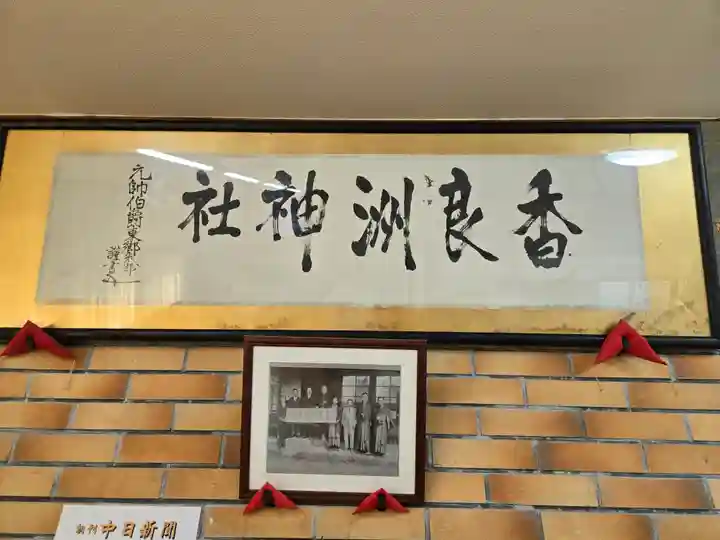 香良洲神社
元帥伯爵東郷平八郎謹書
朝刊 中日新聞